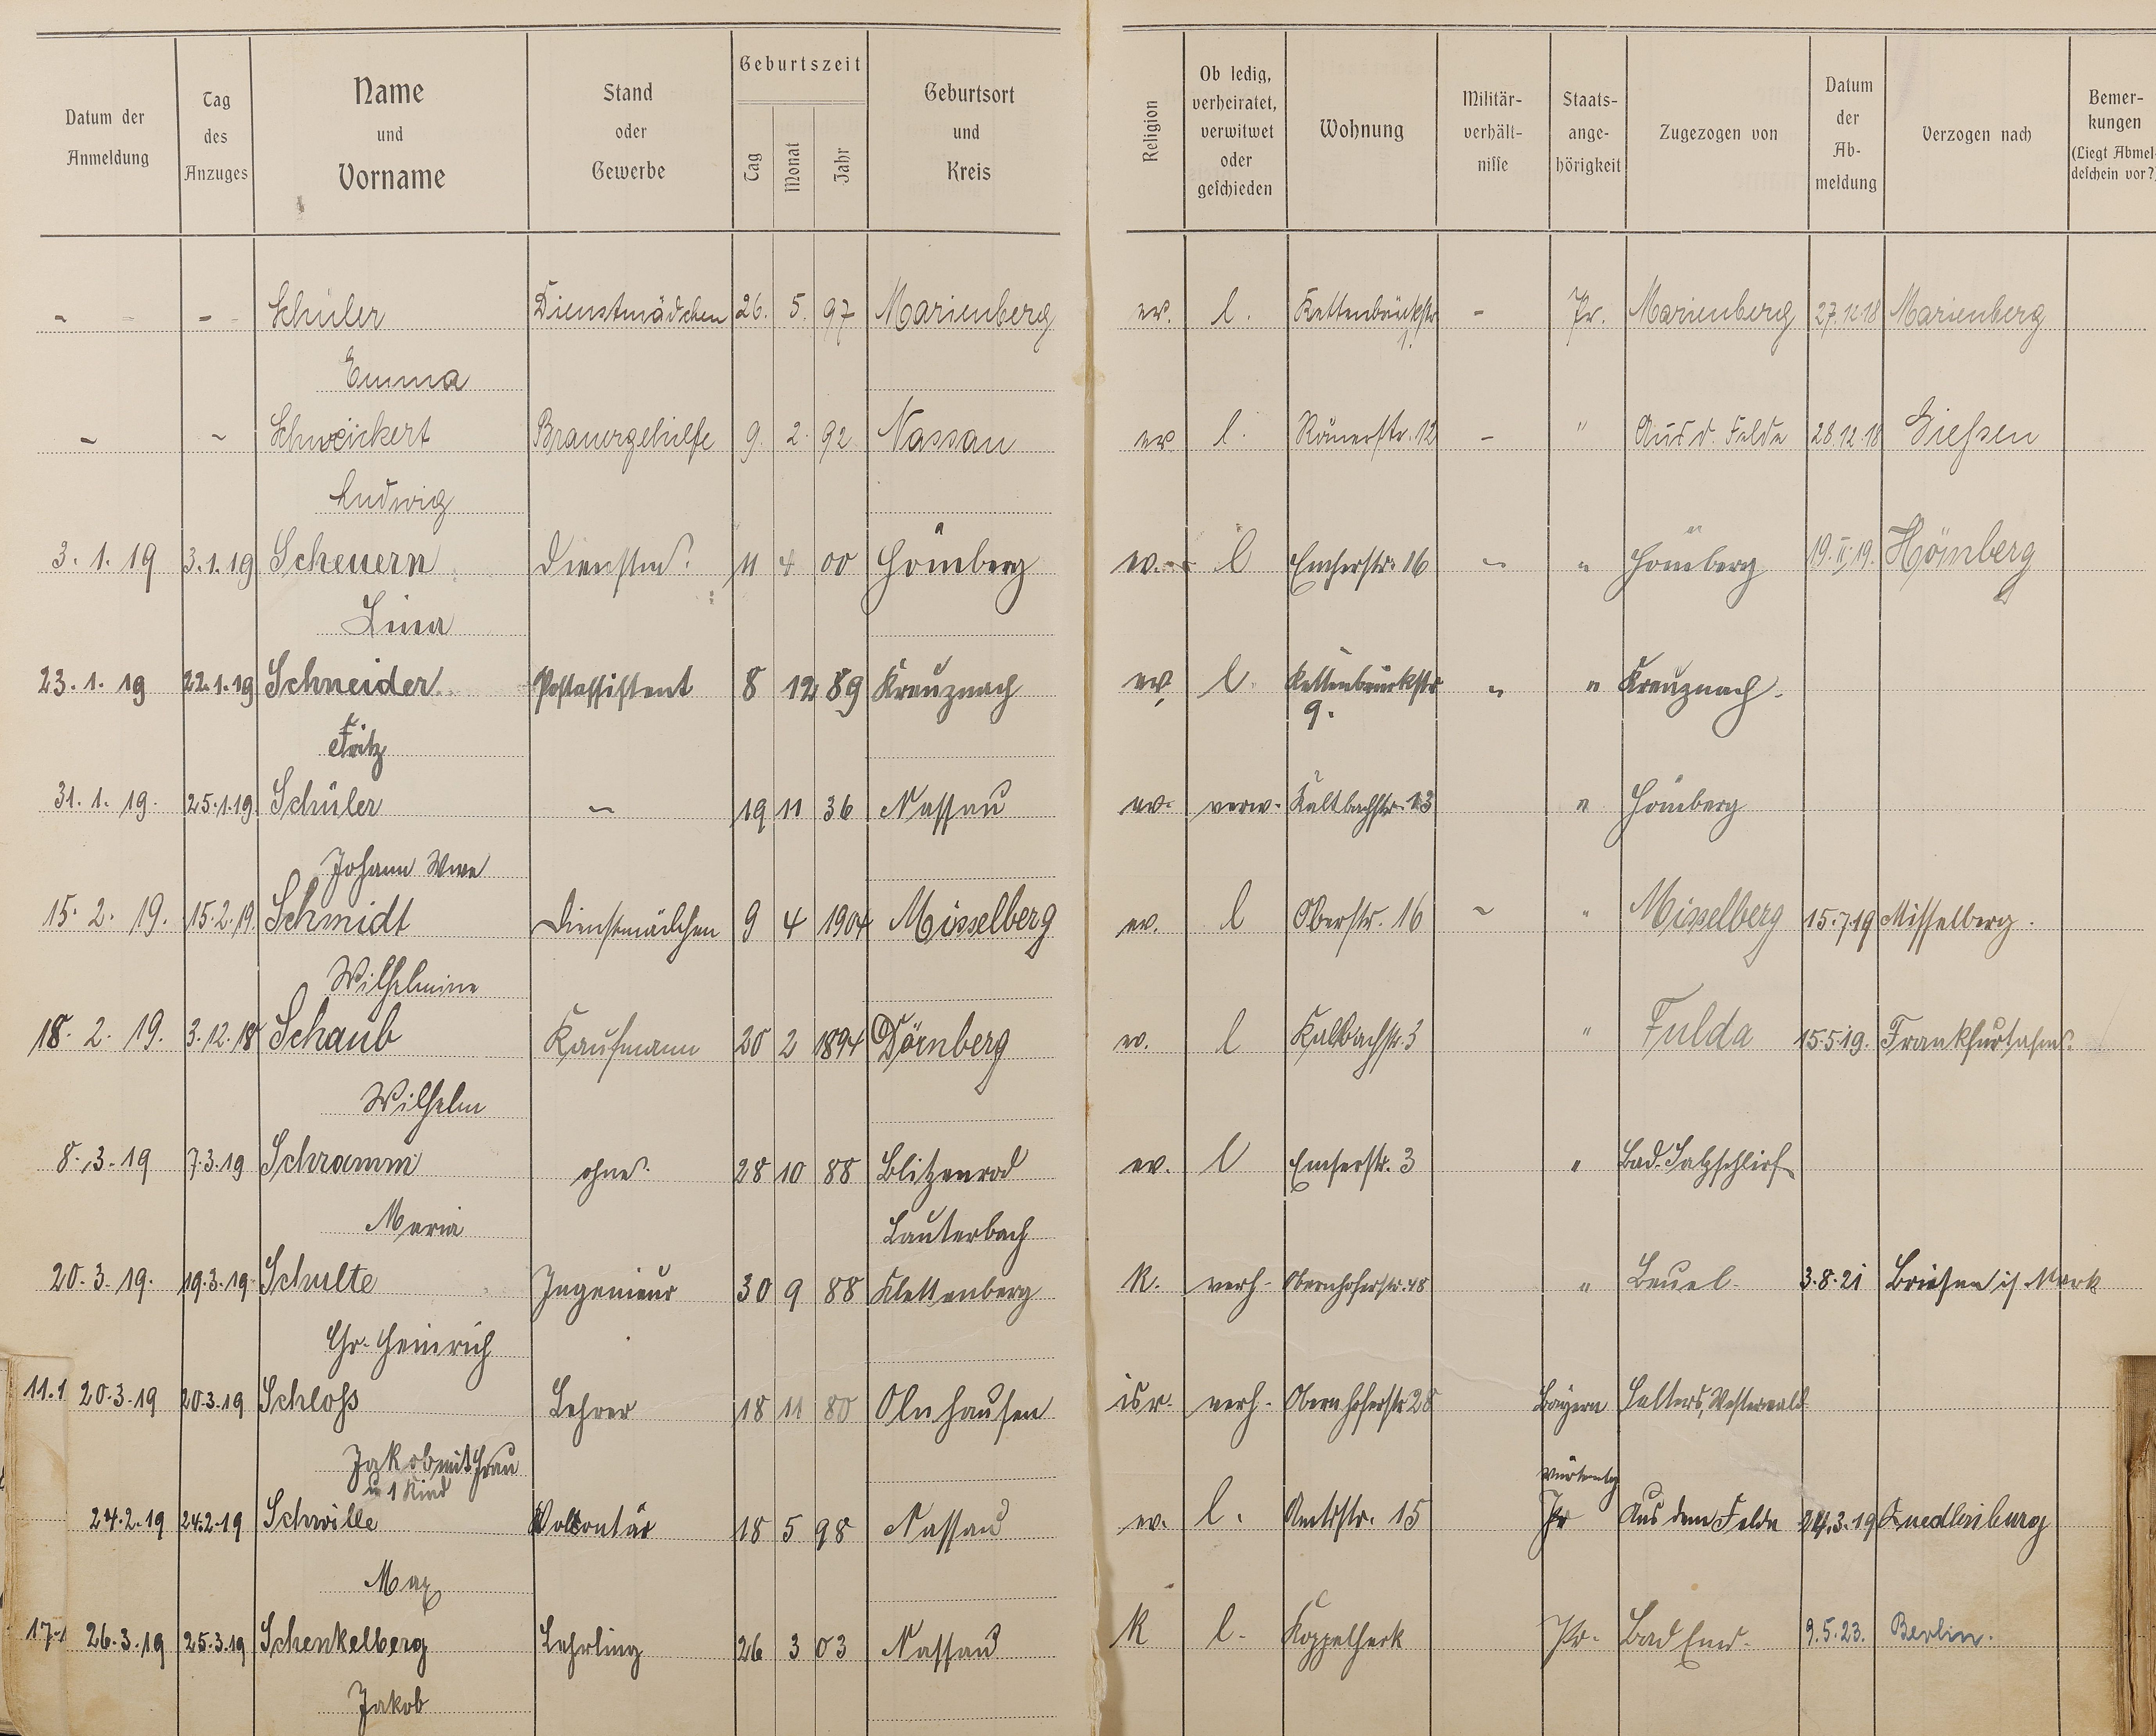 Datum der Anmeldung
Tag des Anzuges
Name und Vorname
Stand oder Gewerbe
Geburtszeit
Tag Monat Jahr
Geburtsort und Kreis
Religion
Ob ledig, verheiratet, verwitwet oder geschieden
Wohnung
Militär-verhält-nisse
Staats-ange-hörigkeit
Zugezogen von
Datum der Ab-meldung
Verzogen nach
Bemer-kungen (Liegt Abmel-deschein vor?)
- - - Schüler Dienstmädchen 26. 5. 97 Marienberg ev. l. Kettenbrückstr 1. - Pr. Marienberg 27.12.18 Marienberg
Emma
- - Schweickert Brauergehilfe 9. 2. 92 Nassau ev l. Römerstr. 12 - " Aus d. Felde 28.12.18 Gießen
Ludwig
3. 1. 19 3.1.19 Scheuern Dienstm. 11 4 00 Hömberg ev. l Emserstr. 16 - " Hömberg 19.II.19. Hömberg
Lina
23. 1. 19 22.1.19 Schneider Postassistent 8 12 89 Kreuznach ev. l Kettenbrückstr 9. " " Kreuznach.
Fritz
31. 1. 19. 25.1.19. Schüler - 19 11 36 Nassau ev. verw. Kaltbachstr. 13 " Hömberg
Johann Wwe
15. 2. 19. 15.2.19. Schmidt Dienstmädchen 9 4 1904 Misselberg ev. l Oberstr. 16 - " Misselberg 15.7.19 Misselberg.
Wilhelmine
18. 2. 19. 3.12.18 Schaub Kaufmann 20 2 1894 Dörnberg ev. l Kaltbachstr. 3 " Fulda 15.5.19. Frankfurt a/m.
Wilhelm
8. 3. 19 7.3.19 Schramm ohne. 28 10 88 Blitzenrod ev. l Emserstr. 3 " Bad. Salzschlirf
Maria Lauterbach
20. 3. 19. 19.3.19 Schulte Ingenieur 30 9 88 Klettenberg K. verh. Obernhoferstr. 48 " Beuel. 3.8.21 Briesen i/ Mark
Chr. Heinrich
11.1 20.3.19 20.3.19 Schloß Lehrer 18 11 80 Olnhausen isr. verh. Obernhoferstr 28 Bayern Selters, Westerwald
Jakob mit Frau
u 1 Kind
24.2.19 24.2.19 Schwille Volontär 18 5 98 Nassau ev. l. Amtsstr. 15 Pr Aus dem Felde 24.3.19 Quedlinburg
Max
17.1 26.3.19 25.3.19 Schenkelberg Lehrling 26 3 03 Nassau K l. Koppelheck Pr. Bad Ems. 9.5.23. Berlin.
Jakob